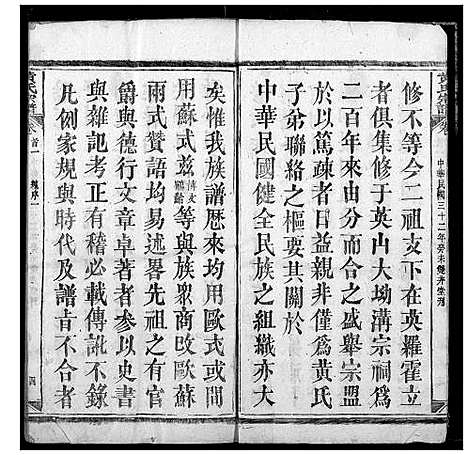 黃氏宗譜
中華民國三十二年癸未雙井堂刊
修不等今二祖支下在英羅霍立
者俱集修于英山大坳溝宗祠爲
二百年來由去日而合之盛舉宗盟
於以篤疎者以親豈僅爲黃氏
子弟聯絡之樞要其關於
中華民國健全民族之組織亦大
矣惟我族譜歷來均用歐式或間
用蘇式兹等與族衆商改歐蘇
兩式贊語均易述畧先祖有功
爵與德行文章卓著者參以史書
與雜記考正有稽必載傳訛不錄
凡例家規與時代及譜旨不合者
黃氏宗譜
卷首一
四